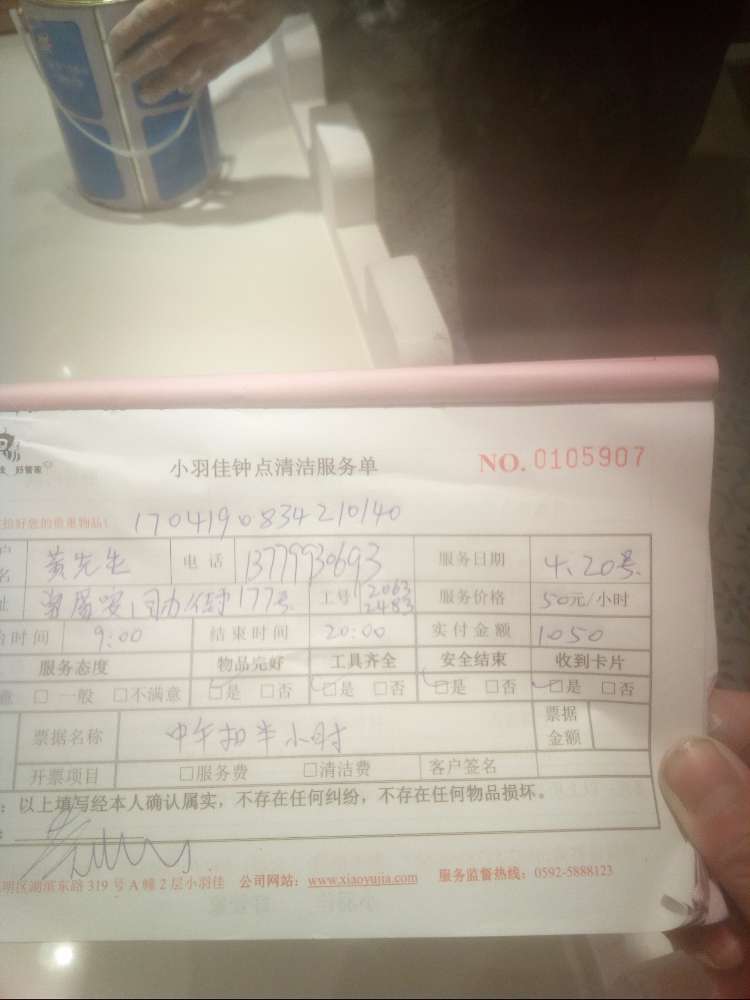 好管家
小羽佳钟点清洁服务单
NO. 0105907
好您的贵重物品！ 1704190834210140
黄先生 电话 13779930693 服务日期 4.20号
177号 工号 2063 2483 服务价格 50元/小时
时间 9:00 结束时间 20:00 实付金额 1050
服务态度 物品完好 工具齐全 安全结束 收到卡片
意 □ 一般 □不满意 □是 □否 □是 □否 □是 □否 □是 □否
票据名称 中午扣半小时 票据金额
开票项目 □服务费 □清洁费 客户签名
：以上填写经本人确认属实，不存在任何纠纷，不存在任何物品损坏。
明区湖滨东路 319 号 A 幢 2 层小羽佳 公司网站：www.xiaoyujia.com 服务监督热线：0592-5888123